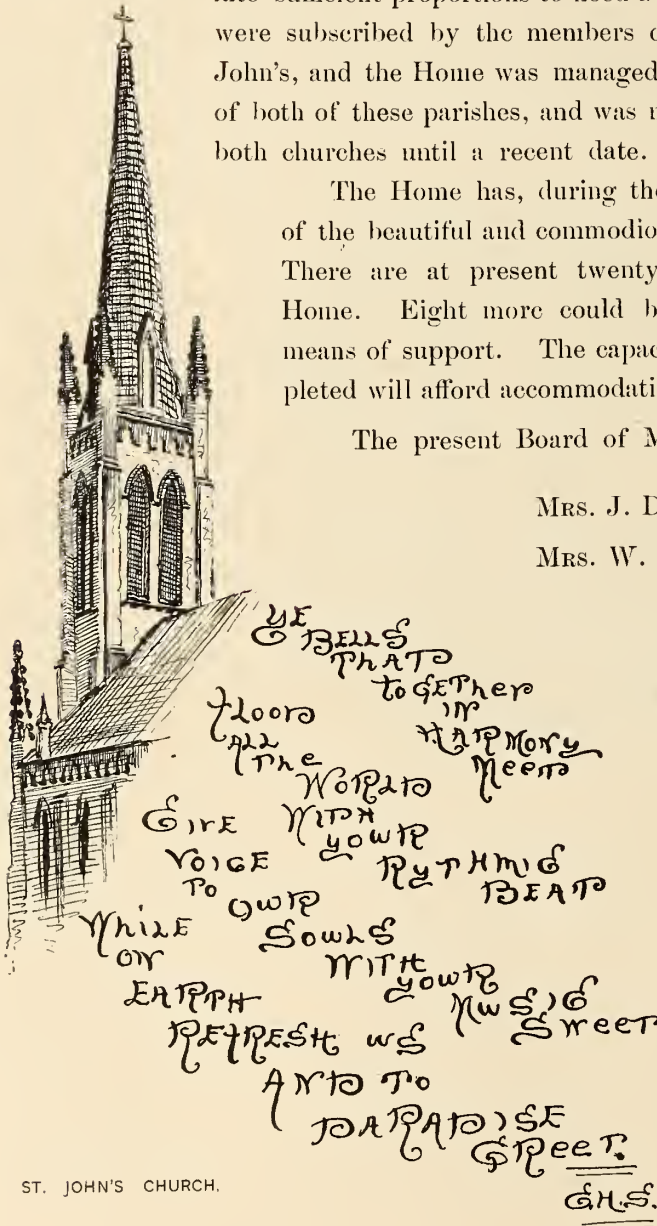 sufficient proportions to need a
were subscribed by the members
John's, and the Home was managed
of both of these parishes, and was
both churches until a recent date.
The Home has, during the
of the beautiful and commodio
There are at present twenty
Home. Eight more could b
means of support. The capac
pleted will afford accommodati
The present Board of M
MRS. J. D
MRS. W.
YE BELLS THAT TOGETHER IN HARMONY MEET
FLOOD ALL THE WORLD WITH YOUR RYTHMIC BEAT
GIVE VOICE TO OUR SOULS WITH YOUR MUSIC SWEET
WHILE ON EARTH REFRESH US AND TO PARADISE GREET.
G.H.S.
ST. JOHN'S CHURCH.